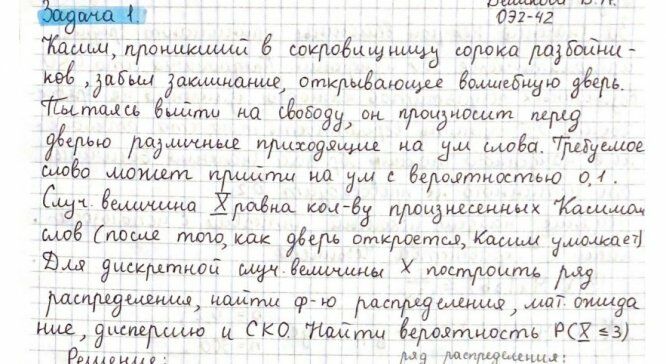 Задача 1.
ОЭ2-42
Касим, проникший в сокровищницу сорока разбойни-
ков, забыл заклинание, открывающее волшебную дверь.
Пытаясь выйти на свободу, он произносит перед
дверью различные приходящие на ум слова. Требуемое
слово может прийти на ум с вероятностью 0,1.
Случ. величина X равна кол-ву произнесенных Касимом
слов (после того, как дверь откроется, Касим умолкает)
Для дискретной случ. величины X построить ряд
распределения, найти ф-ю распределения, мат. ожида
ние, дисперсию и СКО. Найти вероятность P(X ≤ 3)
Решение: ряд распределения: